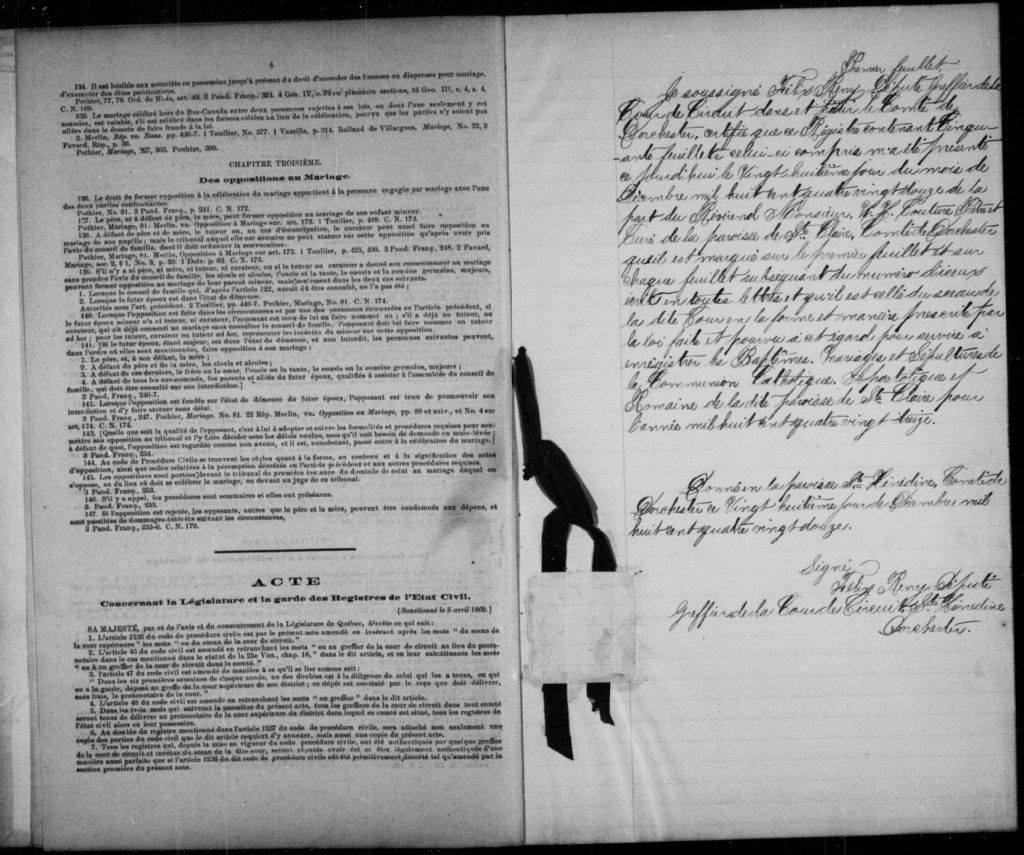 4
134. Il est loisible aux autorités en possession jusqu'à présent du droit d'accorder des licences ou dispenses pour mariage,
d'exempter des dites publications.
Pothier, 77, 78. Ord. de Blois, art. 40. 2 Pand. Franç., 324. 4 Geo. IV, c. 76 en plusieurs sections, 35 Geo. III, c. 4, s. 4,
C. N. 169.
135. Le mariage célébré hors du Bas-Canada entre deux personnes sujettes à ses lois, ou dont l'une seulement y est
soumise, est valable, s'il est célébré dans les formes usitées au lieu de la célébration, pourvu que les parties n'y soient pas
allées dans le dessein de faire fraude à la loi.
2. Merlin, Rép. vo. Bans. pp. 436-7. 1 Toullier, No. 577. 1 Vazille, p. 314. Rolland de Villargues, Mariage, No. 22, 3
Favard, Rép., p. 36.
Pothier, Mariage, 327, 363. Pouhier, 390.
CHAPITRE TROISIÈME.
Des oppositions au Mariage.
136. Le droit de former opposition à la célébration du mariage appartient à la personne engagée par mariage avec l'une
des deux parties contractantes.
Pothier, No. 81. 3 Pand. Franç., p. 241. C. N. 172.
137. Le père, et à défaut du père, la mère, peut former opposition au mariage de son enfant mineur.
Pothier, Mariage, 81. Merlin, vo. Opposition à Mariage sur. art. 173. 1 Toullier, p. 489. C. N. 173.
138. A défaut de père et de mère, le tuteur ou, au cas d'émancipation, le curateur peut aussi faire opposition au
mariage de son pupille; mais le tribunal auquel elle est soumise ne peut statuer sur cette opposition qu'après avoir pris
l'avis du conseil de famille, dont il doit ordonner la convocation.
Pothier, Mariage, 81. Merlin, Opposition à Mariage sur art. 172. 1 Toullier, p. 425, 490. 3 Pand. Franç., 248. 2 Favard,
Mariage, sec. 2, § 1, No. 3, p. 50. 1 Delv. p. 62. C. N. 175.
139. S'il n'y a ni père, ni mère, ni tuteur, ni curateur, ou si le tuteur ou curateur a donné son consentement au mariage
sans prendre l'avis du conseil de famille, les aïeuls et aïeules, l'oncle et la tante, le cousin et la cousine germains, majeurs,
peuvent former opposition au mariage de leur parent mineur, mais seulement dans les deux cas suivants:
1. Lorsque le conseil de famille qui, d'après l'article 122, aurait dû être consulté, ne l'a pas été;
2. Lorsque le futur époux est dans l'état de démence.
Autorités sous l'art. précédent. 2 Toullier, pp. 446-7. Pothier, Mariage, No. 81. C. N. 174.
140. Lorsque l'opposition est faite dans les circonstances et par une des personnes énoncées en l'article précédent, si
le futur époux mineur n'a ni tuteur, ni curateur, l'opposant est tenu de lui en faire nommer un; s'il a déjà un tuteur, ou
curateur, qui ait déjà consenti au mariage sans consulter le conseil de famille, l'opposant doit lui faire nommer un tuteur
ad hoc; pour les tuteur, curateur ou tuteur ad hoc, représenter les intérêts du mineur sur cette opposition.
141. [Si le futur époux, étant majeur, est dans l'état de démence, et non interdit, les personnes suivantes peuvent,
dans l'ordre où elles sont mentionnées, faire opposition à son mariage:
1. Le père, et, à son défaut, la mère;
2. A défaut du père et de la mère, les aïeuls et aïeules;
3. A défaut de ces derniers, le frère ou la sœur, l'oncle ou la tante, le cousin ou la cousine germains, majeurs;
4. A défaut de tous les sus-nommés, les parents et alliés du futur époux, qualifiés à assister à l'assemblée du conseil de
famille, qui doit être consulté sur son interdiction.]
3 Pand. Franç., 246-7.
142. Lorsque l'opposition est fondée sur l'état de démence du futur époux, l'opposant est tenu de promouvoir son
interdiction et d'y faire statuer sans délai.
3 Pand. Franç., 247. Pothier, Mariage, No. 81. 22 Rép. Merlin, vo. Opposition au Mariage, pp. 88 et suiv., et No. 4 sur
art. 174. C. N. 174.
143. [Quelle que soit la qualité de l'opposant, c'est à lui à adopter et suivre les formalités et procédures requises pour sou-
mettre son opposition au tribunal et l'y faire décider sous les délais voulus, sans qu'il soit besoin de demande en main-levée;
à défaut de quoi, l'opposition est regardée comme non avenue, et il est, nonobstant, passé outre à la célébration du mariage.]
3 Pand. Franç., 254.
144. Au code de Procédure Civile se trouvent les règles quant à la forme, au contenu et à la signification des actes
d'opposition, ainsi que celles relatives à la péremption décrétée en l'article précédent et aux autres procédures requises.
145. Les oppositions sont portées devant le tribunal de première instance du domicile de celui au mariage duquel on
s'oppose, ou du lieu où doit se célébrer le mariage, ou devant un juge de ce tribunal.
3 Pand. Franç., 253.
146. S'il y a appel, les procédures sont sommaires et elles ont préséance.
3. Pand. Franç., 253.
147. Si l'opposition est rejetée, les opposants, autres que le père et la mère, peuvent être condamnés aux dépens, et
sont passibles de dommages-intérêts suivant les circonstances,
3 Pand. Franç., 255-6. C. N. 179.
ACTE
Concernant la Législature et la garde des Registres de l'Etat Civil.
[Sanctionné le 5 avril 1869.]
SA MAJESTÉ, par et de l'avis et du consentement de la Législature de Québec, décrète ce qui suit:
1. L'article 1236 du code de procédure civile est par le présent acte amendé en insérant après les mots "du sceau de
la cour supérieure" les mots "ou du sceau de la cour de circuit."
2. L'article 45 du code civil est amendé en retranchant les mots "ou au greffier de la cour de circuit au lieu du proto-
notaire dans le cas mentionné dans le statut de la 25e Vict., chap. 16," dans le dit article, et en leur substituant les mots
"ou à un greffier de la cour de circuit dans le comté."
3. l'article 47 du code civil est amendé de manière à ce qu'il se lise comme suit:
"Dans les six premières semaines de chaque année, un des doubles est à la diligence de celui qui les a tenus, ou qui
en a la garde, déposé au greffe de la cour supérieure de son district; ce dépôt est constaté par le reçu que doit délivrer,
sans frais, le protonotaire de la cour."
4. L'article 48 du code civil est amendé en retranchant les mots "ou greffier" dans le dit article.
5. Dans les trois mois qui suivront la passation du présent acte, tous les greffiers de la cour de circuit dans tout comté
seront tenus de délivrer au protonotaire de la cour supérieure du district dans lequel en comté est situé, tous les registres de
l'état civil alors en leur possession.
6. Au double du registre mentionné dans l'article 1237 du code de procédure civile, sera attaché non seulement une
copie des parties du code civil que le dit article requiert d'y annexer, mais aussi une copie du présent acte.
7. Tous les registres qui, depuis la mise en vigueur du code procédure civile, ont été authentiqués par quelque greffier
de la cour de circuit et revêtus du sceau de la dite cour, seront réputés avoir été et être légalement authentiqués d'une
manière aussi parfaite que si l'article 1236 du dit code de procédure civile eût été primitivement décrété tel qu'amendé par la
section première du présent acte.
Premier feuillet
Je soussigné Félix Remy Député Greffier de la
Cour de Circuit dans et pour le Comté de
Dorchester, certifie que ce Régistre contenant Cinqu-
-ante feuillets celui-ci compris m'a été présenté
ce jourd'hui le Vingt huitième jour du mois de
Décembre mil huit cent quatre vingt douze de la
part du Révérend Monsieur, Couture Prêtre et
Curé de la paroisse de Ste Claire, Comté de Dorchester
qu'il est marqué sur le premier feuillet et sur
chaque feuillet subséquent du numéro d'iceux
écrit en toutes lettres et qu'il est celle du sceau de
la dite Cour en la forme et manière prescrite par
la loi faite et pourvue à cet égard pour servir à
enrégistrer les Baptêmes, Mariages et Sépultures de
la Communion Catholique, Apostolique et
Romaine de la dite paroisse de Ste Claire pour
l'année mil huit cent quatre vingt treize.
Donné en la paroisse Ste Hénédine, Comté de
Dorchester ce Vingt huitième jour de Décembre mil
huit cent quatre vingt douze.
Signé
Félix Remy Député
Greffier de la Cour de Circuit Ste Hénédine
Dorchester.